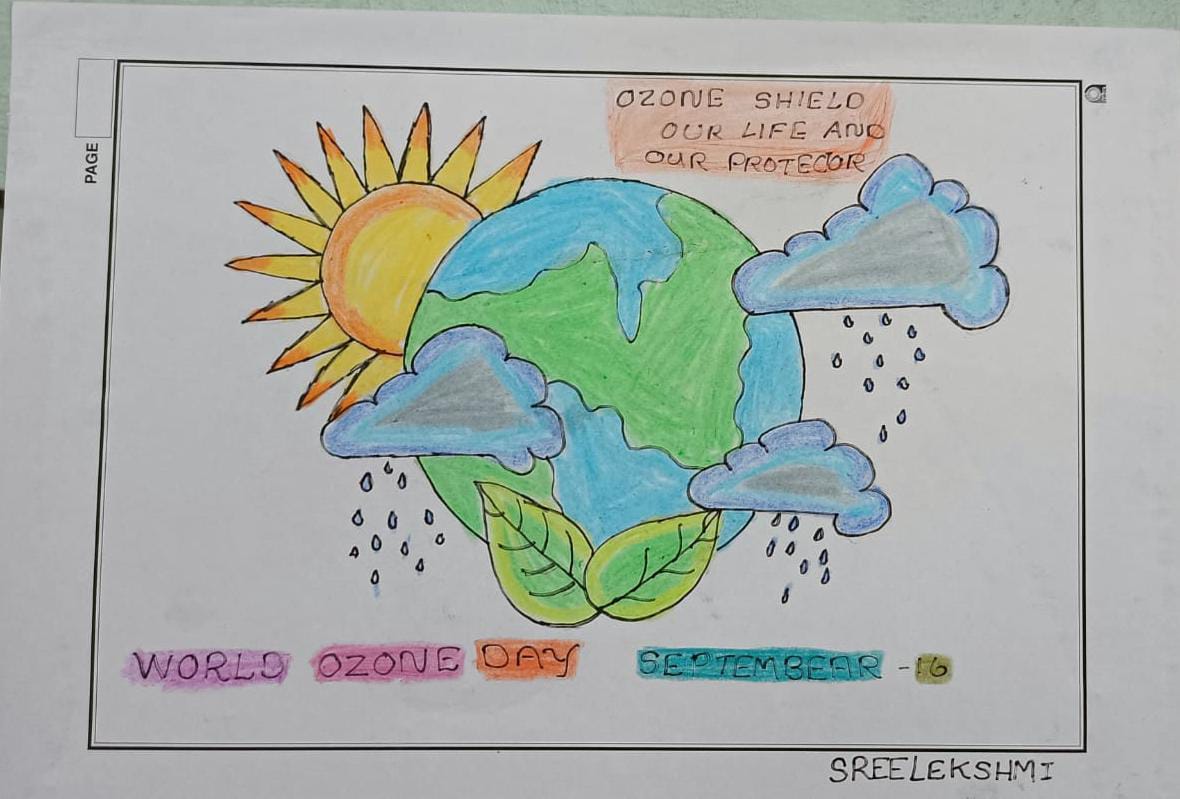 OZONE SHIELD
OUR LIFE AND
OUR PROTECOR
PAGE
WORLD OZONE DAY SEPTEMBEAR -16
SREELEKSHMI